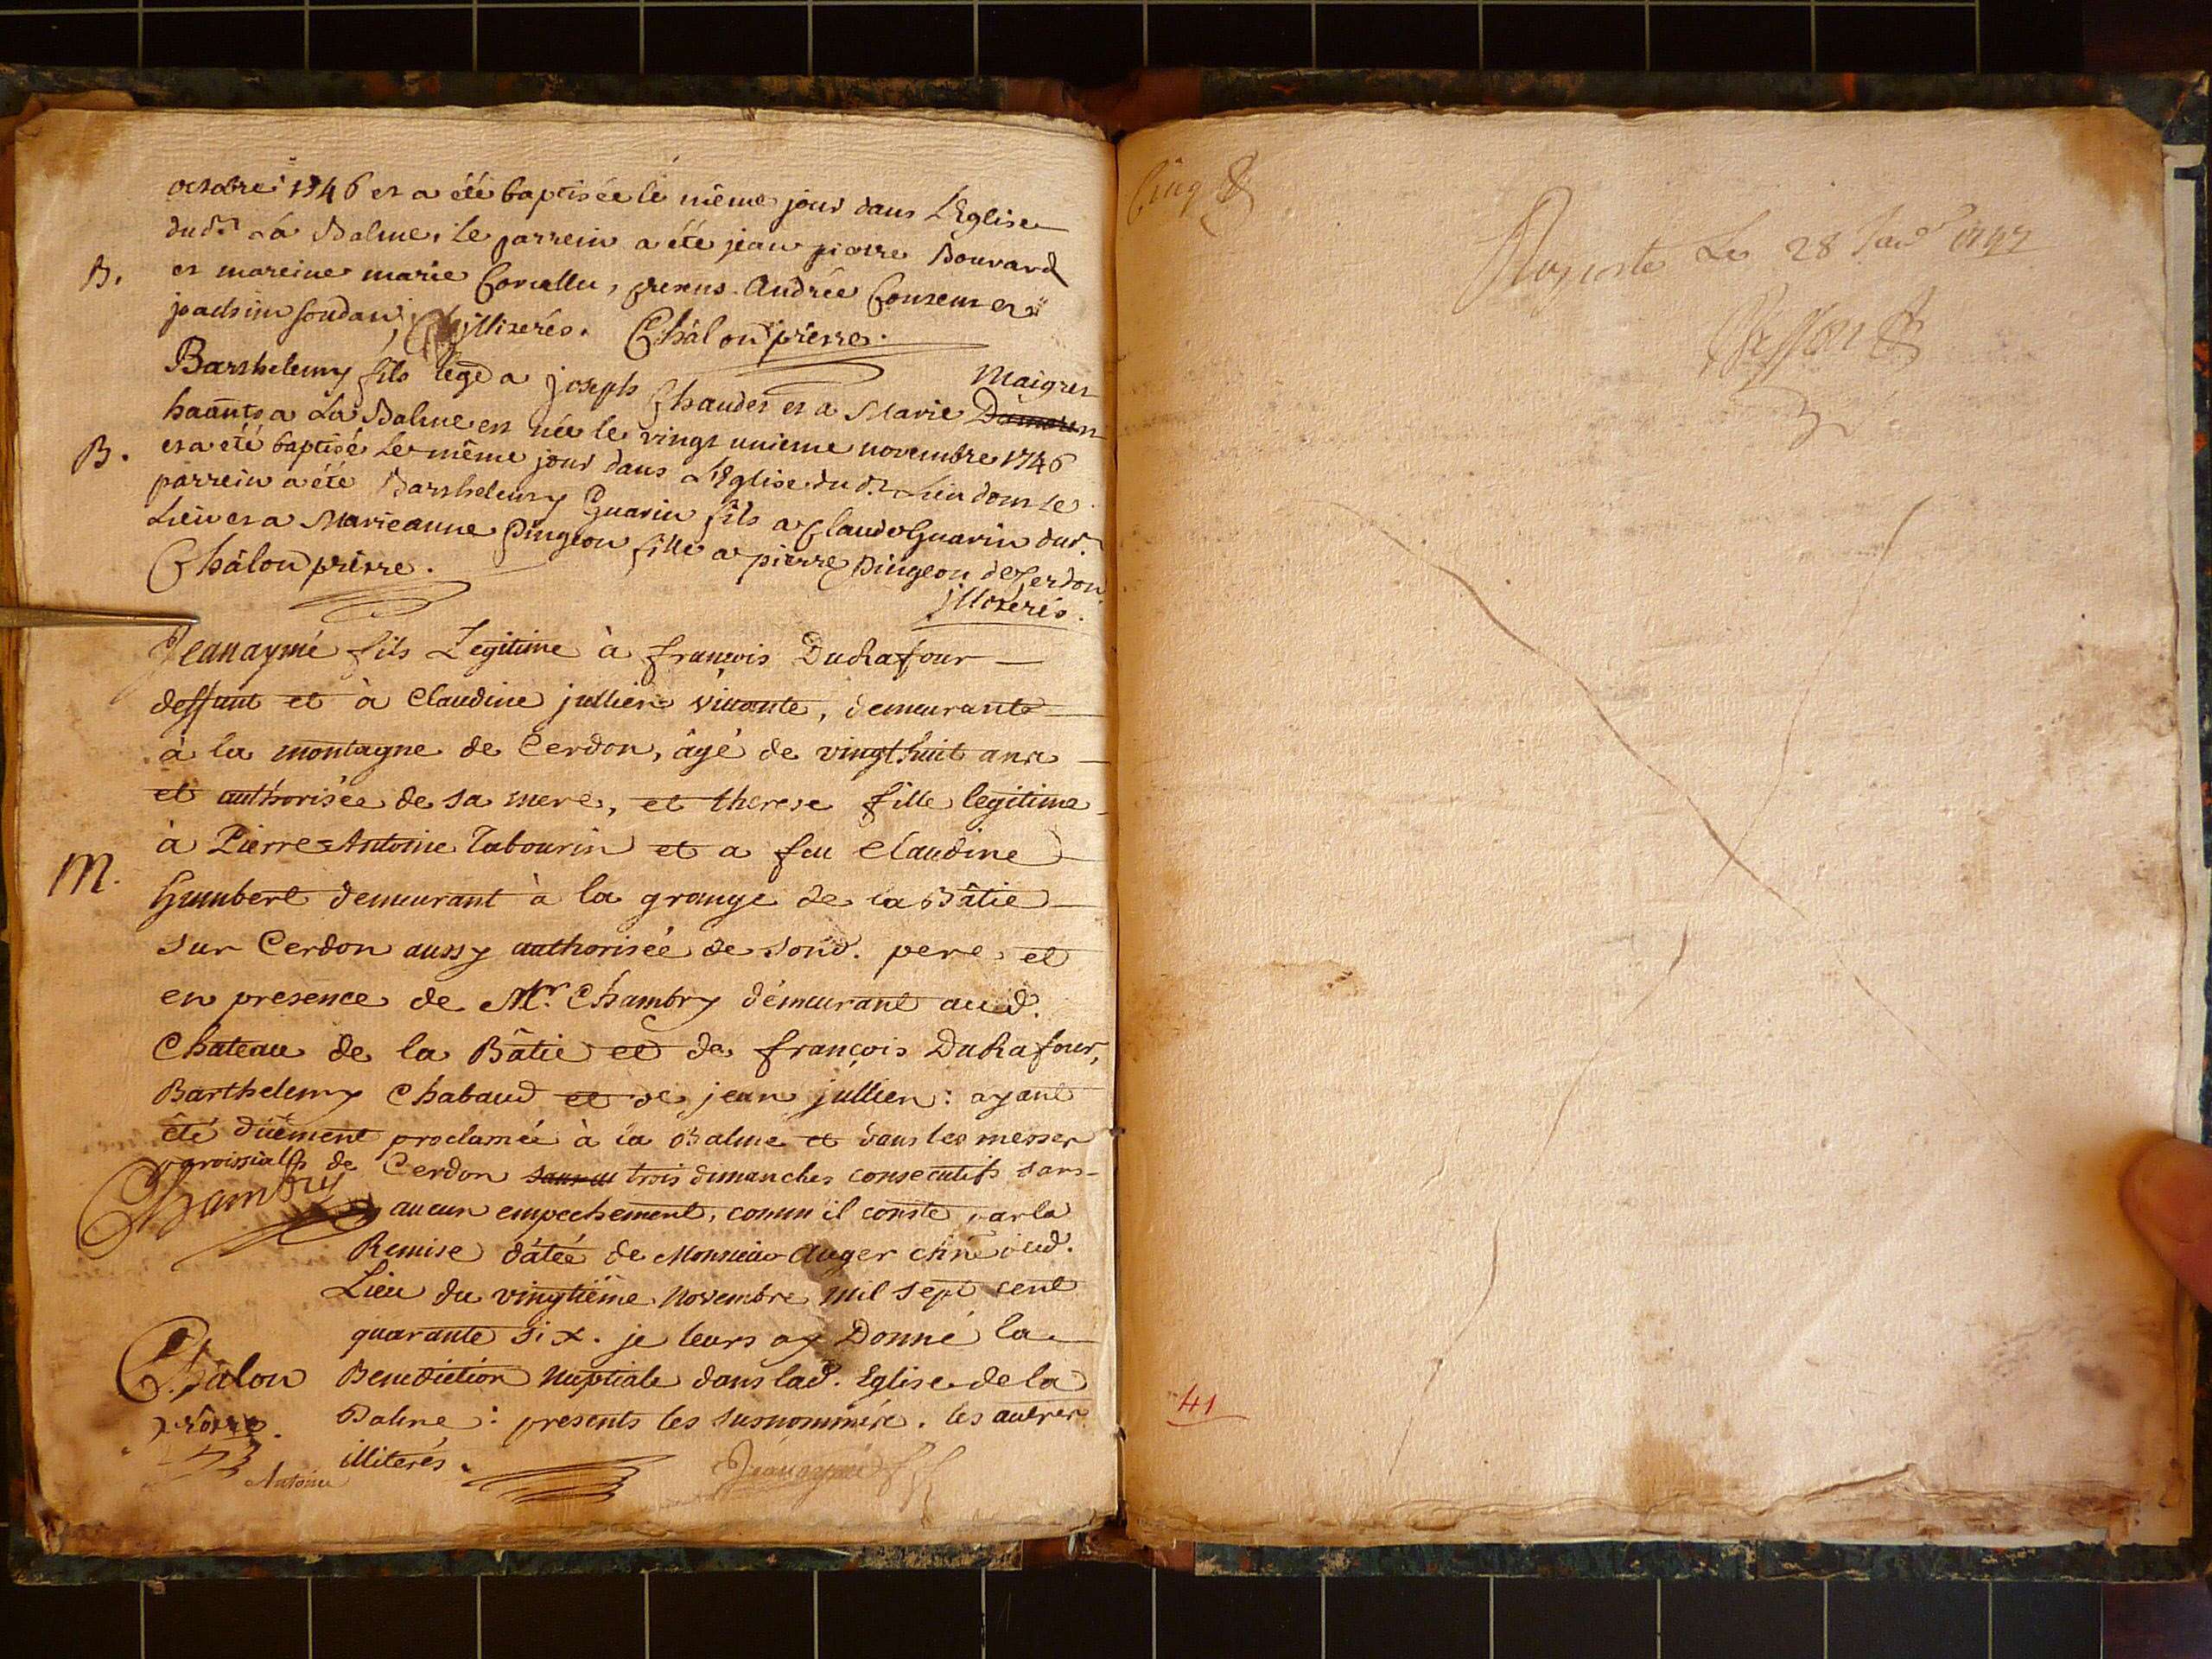 octobre 1746 et a été baptisée le même jour dans L'Eglise
dud.t La Balme. Le parrein a été jean pierre Bouvard
B.
et mareine marie, presens André et
joachim illiterés. Châlon prêtre.
Barthelemy fils leg.e a joseph Chaudet et a Marie Maigret
haants a La Balme est née le vingt unieme novembre 1746
B.
et a été baptisé Le même jour dans L'Eglise dud.t Lieu dont Le
parrein a été Barthelemy Guarin fils a Claude Guarin dud.
Lieu et a Marieanne Pingeon fille a pierre Pingeon de Cerdon
Châlon prêtre.
illiterés.
Jean aymé fils Legitime à françois DuRafour
deffunt et à Claudine jullien vivante, demeurante
à la montagne de Cerdon, âgé de vingt huit ans
et authorisée de sa mere, et therese fille legitime
à Pierre Antoine Tabourin et a feu Claudine
M.
Humbert demeurant à la grange de la Bâtie
sur Cerdon aussy authorisée de sond. pere et
en presence de Mr. Chambry demeurant aud.
Chateau de la Bâtie et de françois DuRafour,
Barthelemy Chabaud et de jean jullien: ayant
été düement proclamée à la Balme et dans les messes
paroissialls de Cerdon trois dimanches consecutifs sans
Chambry
aucun empechement, comm il conste par la
Remise dâtée de Monsieur Auger dud.
Lieu du vingtiême Novembre mil sept cent
quarante six. je leurs ay Donné la
Châlon
Benediction Nuptiale dans lad. Eglise de la
prêtre.
Balme: presents les susnommés. les autres
illiterés.
Antoine
Jean aymé
Cinq
Le 28 1747
41